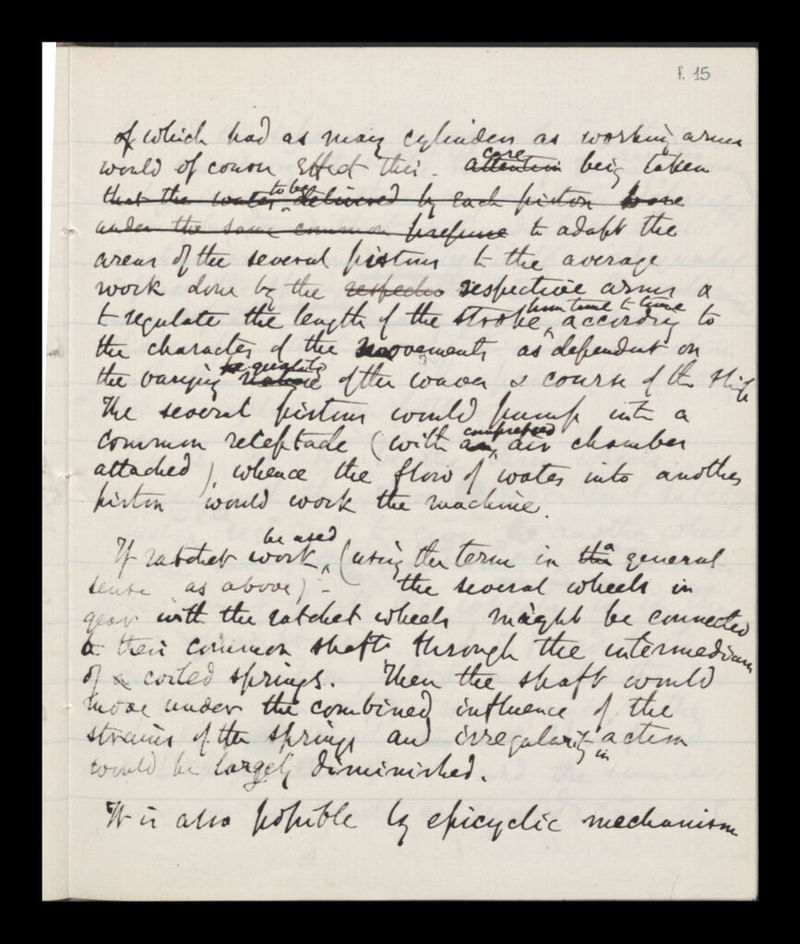 f. 15
of which had as many cylinders as working arms
would of course effect this. attention care being taken
that the water to be delivered by each piston
under the same common pressure to adapt the
areas of the several pistons to the average
work done by the respective respective arms &
to regulate the length of the stroke from time to time according to
the character of the movements as dependent on
the varying of the waves & course of the ship
The several pistons would pump into a
common receptacle (with an compressed air chamber
attached), whence the flow of water into another
piston would work the machine.
If ratchet work be used (using the term in the a general
sense, as above) – the several wheels in
gear with the ratchet wheels might be connected
to their common shaft through the intermedium
of coiled springs. Then the shaft would
move under the combined influence of the
strains of the springs and irregularity in action
would be largely diminished.
It is also possible by epicyclic mechanism